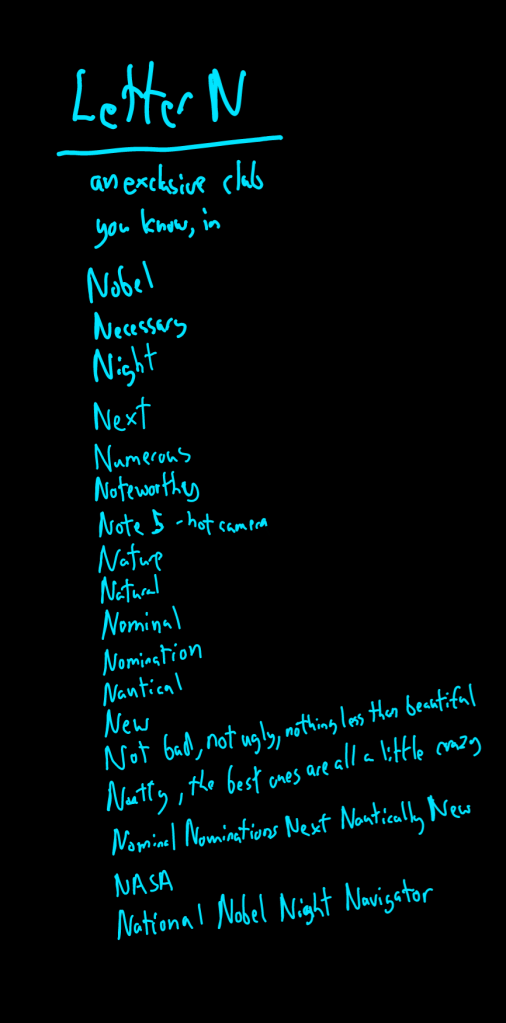 Letter N
an exclusive club
you know, in
Nobel
Necessary
Night
Next
Numerous
Noteworthy
Note 5 - hot camera
Nature
Natural
Nominal
Nomination
Nautical
New
Not bad, not ugly, nothing less than beautiful
Nutty, the best ones are all a little crazy
Nominal Nominations Next Nautically New
NASA
National Nobel Night Navigator